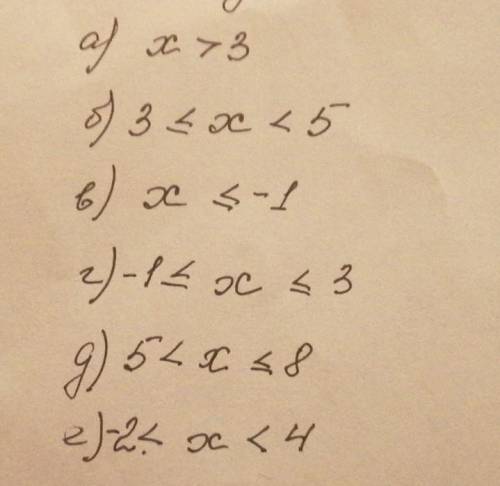 а) x > 3
б) 3 ≤ x < 5
в) x ≤ -1
г) -1 ≤ x ≤ 3
д) 5 < x ≤ 8
е) -2 < x < 4